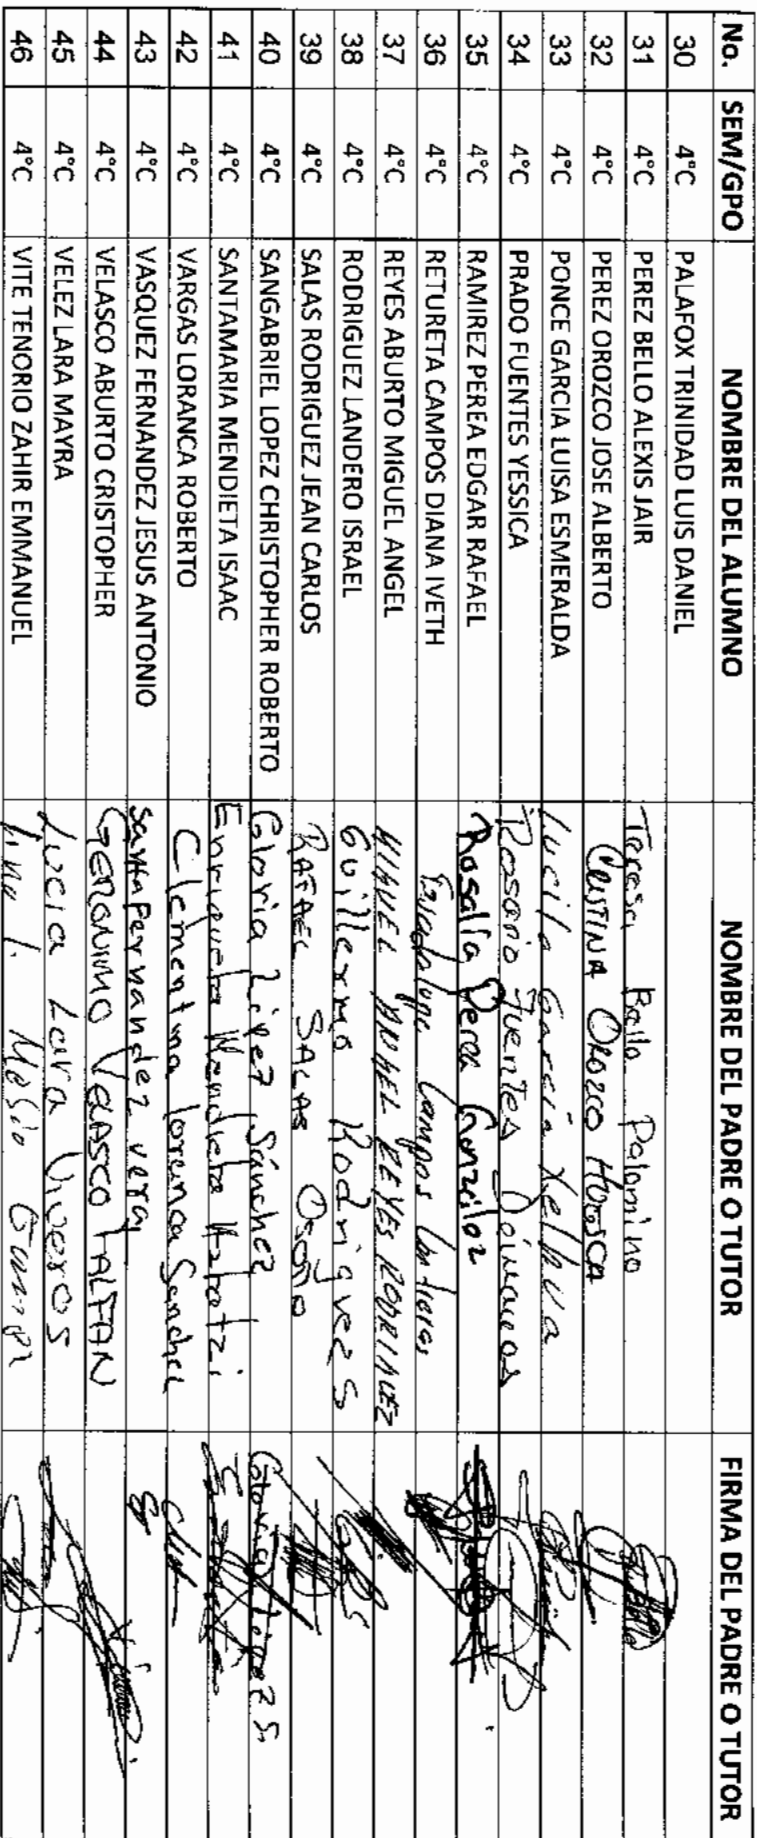 No. SEM/GPO NOMBRE DEL ALUMNO NOMBRE DEL PADRE O TUTOR FIRMA DEL PADRE O TUTOR
30 4°C PALAFOX TRINIDAD LUIS DANIEL
31 4°C PEREZ BELLO ALEXIS JAIR Teresa Bello Palomino
32 4°C PEREZ OROZCO JOSE ALBERTO CRISTINA OROZCO
33 4°C PONCE GARCIA LUISA ESMERALDA Lucila García Xelhua
34 4°C PRADO FUENTES YESSICA Rosario Fuentes
35 4°C RAMIREZ PEREA EDGAR RAFAEL Rosalía Perea González
36 4°C RETURETA CAMPOS DIANA IVETH Guadalupe Campos Contreras
37 4°C REYES ABURTO MIGUEL ANGEL MIGUEL ANGEL REYES RODRIGUEZ
38 4°C RODRIGUEZ LANDERO ISRAEL Guillermo Rodriguez S
39 4°C SALAS RODRIGUEZ JEAN CARLOS RAFAEL SALAS Osorio
40 4°C SANGABRIEL LOPEZ CHRISTOPHER ROBERTO Gloria López Sánchez Gloria López S.
41 4°C SANTAMARIA MENDIETA ISAAC Enriqueta Mendieta
42 4°C VARGAS LORANCA ROBERTO Clementina loranca Sanchez
43 4°C VASQUEZ FERNANDEZ JESUS ANTONIO Santa Fernandez vera
44 4°C VELASCO ABURTO CRISTOPHER GERONIMO VELASCO TALFAN
45 4°C VELEZ LARA MAYRA Lucia Lara Viveros
46 4°C VITE TENORIO ZAHIR EMMANUEL